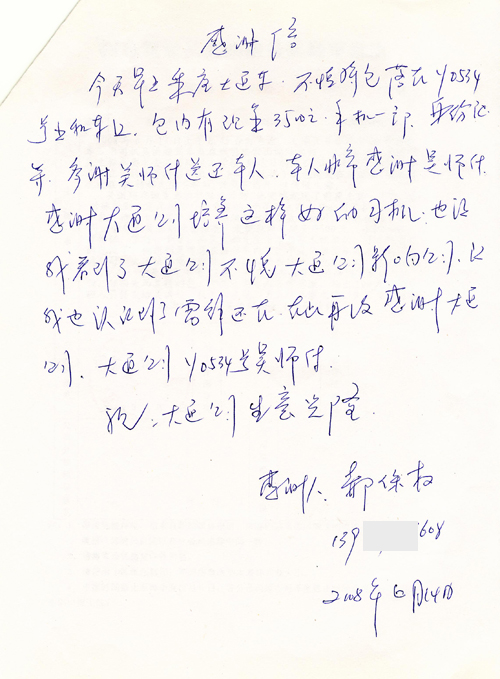 感谢信
今天早上乘座大通车，不慎将包落在Y0534
号出租车上，包内有现金3500元、手机一部、身份证
等，多谢吴师付送还本人，本人非常感谢吴师付
感谢大通公司培养这样好的司机，也让
我看到了大通公司不愧大通公司影响公司，让
我也认识到了雷锋还在，在此再次感谢大通
公司、大通公司Y0534号吴师付.
祝：大通公司生意兴隆
感谢人：郝保
139 1608
2008年6月14日